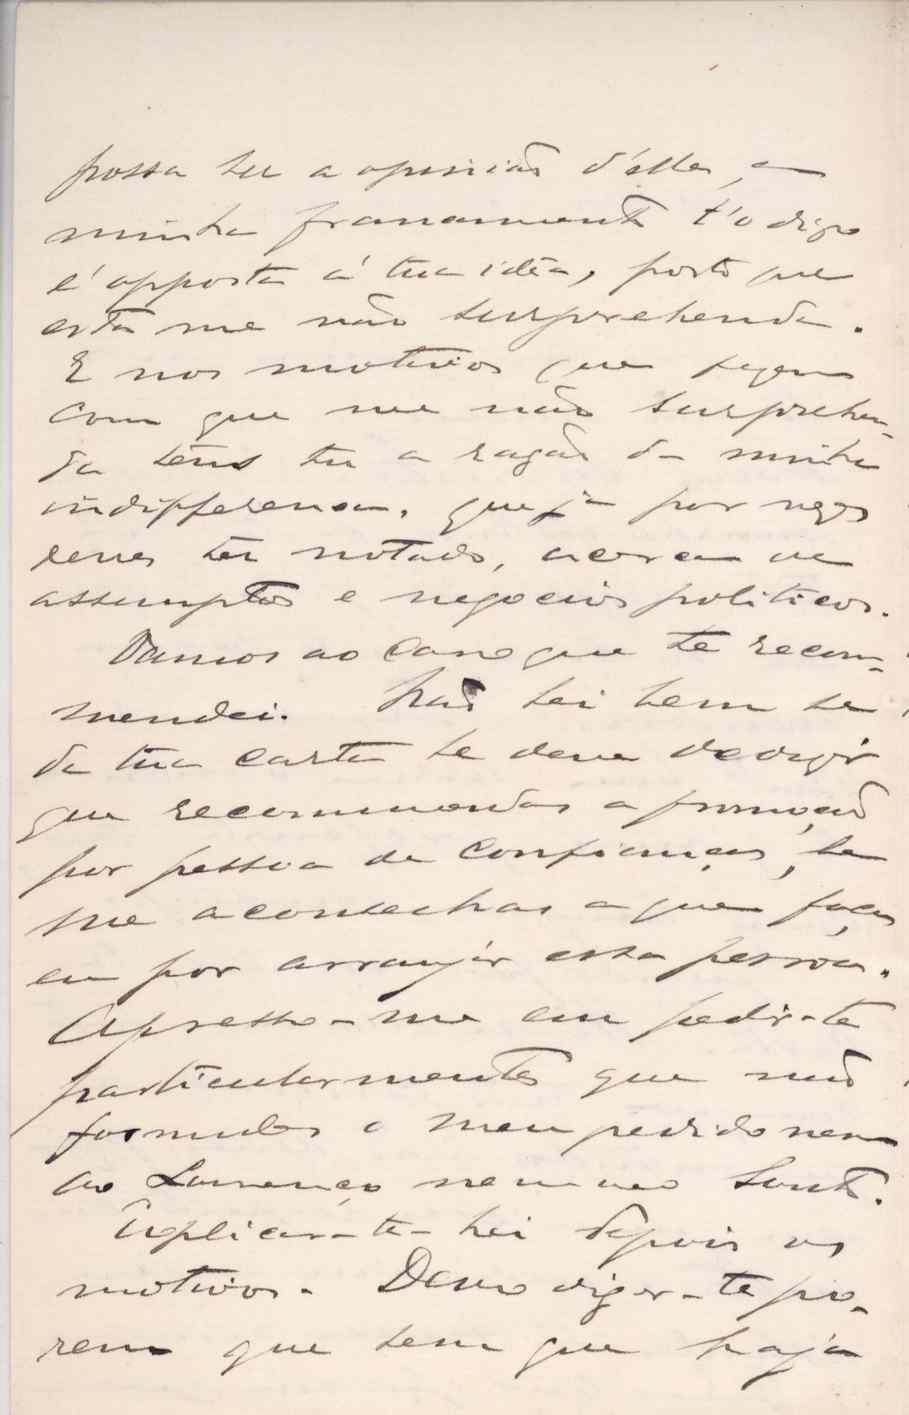 possa ser a opinião d'elles, a
minha francamente t'o digo
é opposta á tua idéa, posto que
esta me não surprehenda.
E nos motivos que fazem
com que me não surprehen-
da tens tu a razão da minha
indifferença, que já por vezes
deves ter notado, acerca de
assumptos e negocios politicos.
Vamos ao caso que te recom-
mendei. Não sei bem se
da tua carta se deve deduzir
que recommendas a promoção
por pessoa de confiança, se
me aconselhas a que faça
eu por arranjar essa pessoa.
Apresso-me em pedir-te
particularmente que não
formules o meu pedido nem
ao Lourenço nem ao
Explicar-te-hei depois os
motivos. Devo dizer-te po-
rem que sem que haja